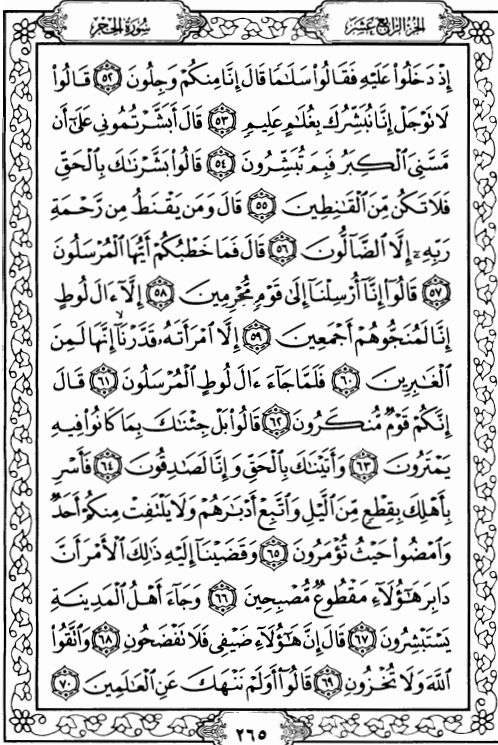 الجزء الرابع عشر
سورة الحجر
إِذْ دَخَلُوا۟ عَلَيْهِ فَقَالُوا۟ سَلَٰمًا قَالَ إِنَّا مِنكُمْ وَجِلُونَ ٥٢ قَالُوا۟
لَا تَوْجَلْ إِنَّا نُبَشِّرُكَ بِغُلَٰمٍ عَلِيمٍ ٥٣ قَالَ أَبَشَّرْتُمُونِى عَلَىٰٓ أَن
مَّسَّنِىَ ٱلْكِبَرُ فَبِمَ تُبَشِّرُونَ ٥٤ قَالُوا۟ بَشَّرْنَٰكَ بِٱلْحَقِّ
فَلَا تَكُن مِّنَ ٱلْقَٰنِطِينَ ٥٥ قَالَ وَمَن يَقْنَطُ مِن رَّحْمَةِ
رَبِّهِۦٓ إِلَّا ٱلضَّآلُّونَ ٥٦ قَالَ فَمَا خَطْبُكُمْ أَيُّهَا ٱلْمُرْسَلُونَ
٥٧ قَالُوٓا۟ إِنَّآ أُرْسِلْنَآ إِلَىٰ قَوْمٍ مُّجْرِمِينَ ٥٨ إِلَّآ ءَالَ لُوطٍ
إِنَّا لَمُنَجُّوهُمْ أَجْمَعِينَ ٥٩ إِلَّا ٱمْرَأَتَهُۥ قَدَّرْنَآ ۙ إِنَّهَا لَمِنَ
ٱلْغَٰبِرِينَ ٦٠ فَلَمَّا جَآءَ ءَالَ لُوطٍ ٱلْمُرْسَلُونَ ٦١ قَالَ
إِنَّكُمْ قَوْمٌ مُّنكَرُونَ ٦٢ قَالُوا۟ بَلْ جِئْنَٰكَ بِمَا كَانُوا۟ فِيهِ
يَمْتَرُونَ ٦٣ وَأَتَيْنَٰكَ بِٱلْحَقِّ وَإِنَّا لَصَٰدِقُونَ ٦٤ فَأَسْرِ
بِأَهْلِكَ بِقِطْعٍ مِّنَ ٱلَّيْلِ وَٱتَّبِعْ أَدْبَٰرَهُمْ وَلَا يَلْتَفِتْ مِنكُمْ أَحَدٌ
وَٱمْضُوا۟ حَيْثُ تُؤْمَرُونَ ٦٥ وَقَضَيْنَآ إِلَيْهِ ذَٰلِكَ ٱلْأَمْرَ أَنَّ
دَابِرَ هَٰٓؤُلَآءِ مَقْطُوعٌ مُّصْبِحِينَ ٦٦ وَجَآءَ أَهْلُ ٱلْمَدِينَةِ
يَسْتَبْشِرُونَ ٦٧ قَالَ إِنَّ هَٰٓؤُلَآءِ ضَيْفِى فَلَا تَفْضَحُونِ ٦٨ وَٱتَّقُوا۟
ٱللَّهَ وَلَا تُخْزُونِ ٦٩ قَالُوٓا۟ أَوَلَمْ نَنْهَكَ عَنِ ٱلْعَٰلَمِينَ ٧٠
٢٦٥